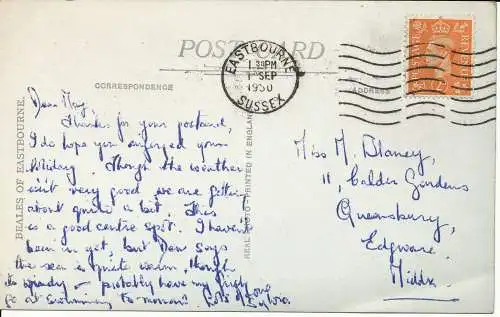 POST CARD
CORRESPONDENCE
ADDRESS
EASTBOURNE
1 30 PM
1 SEP
1950
SUSSEX
POSTAGE
REVENUE
BEALES OF EASTBOURNE.
REAL PHOTO-PRINTED IN ENGLAND
Dear May,
Thanks for your postcard,
I do hope you enjoyed your
holiday. Though the weather
isn't very good we are getting
about quite a bit. This
is a good centre spot. I haven't
been in yet, but Dan says
the sea is quite warm, though
to windy - probably have my first
go at swimming to-morrow. Lots of love
Sylvia.
Miss M. Blaney,
11, Calder Gardens
Queensbury,
Edgware.
Middx.